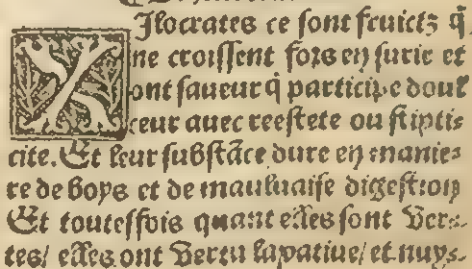 XIlocrates ce sont fruictz q̃
ne croissent fors en surie et
ont saueur q̃ participe doul
ceur auec reestete ou stipti=
cite. Et leur substãce dure en manie=
re de boys et de mauluaise digestion
Et toutessois quant elles sont Ver=
tes/ elles ont Vertu lapatiue/ et nuys=